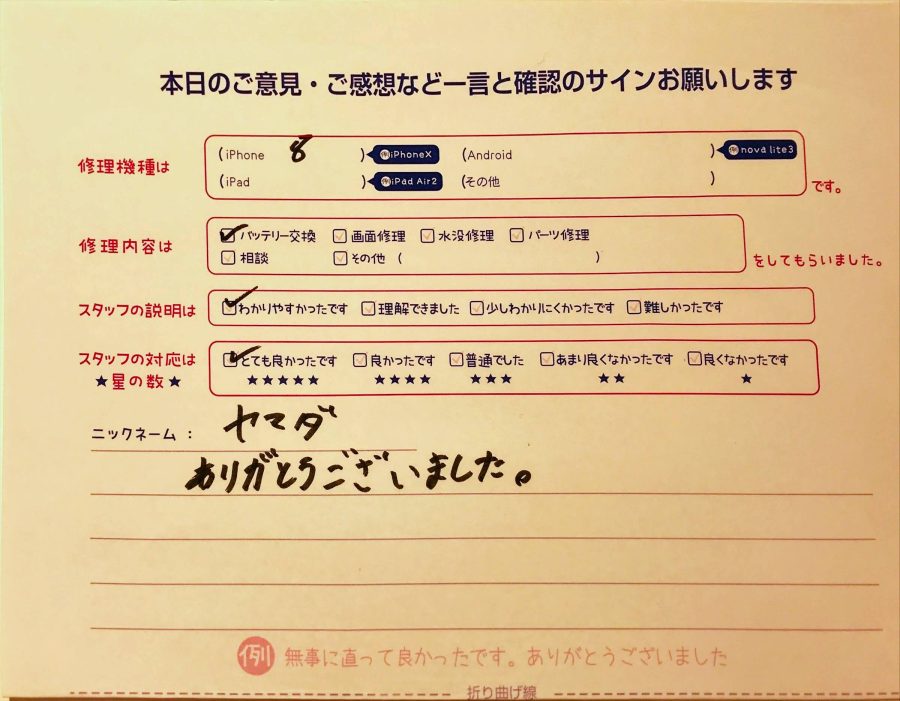 本日のご意見・ご感想など一言と確認のサインお願いします
修理機種は (iPhone 8 ) 例iPhoneX (Android ) 例nova lite3
(iPad ) 例iPad Air2 (その他 ) です。
修理内容は バッテリー交換 画面修理 水没修理 パーツ修理
相談 その他 ( ) をしてもらいました。
スタッフの説明は わかりやすかったです 理解できました 少しわかりにくかったです 難しかったです
スタッフの対応は とても良かったです 良かったです 普通でした あまり良くなかったです 良くなかったです
★星の数★ ★★★★★ ★★★★ ★★★ ★★ ★
ニックネーム: ヤマダ
ありがとうございました。
例 無事に直って良かったです。ありがとうございました
折り曲げ線